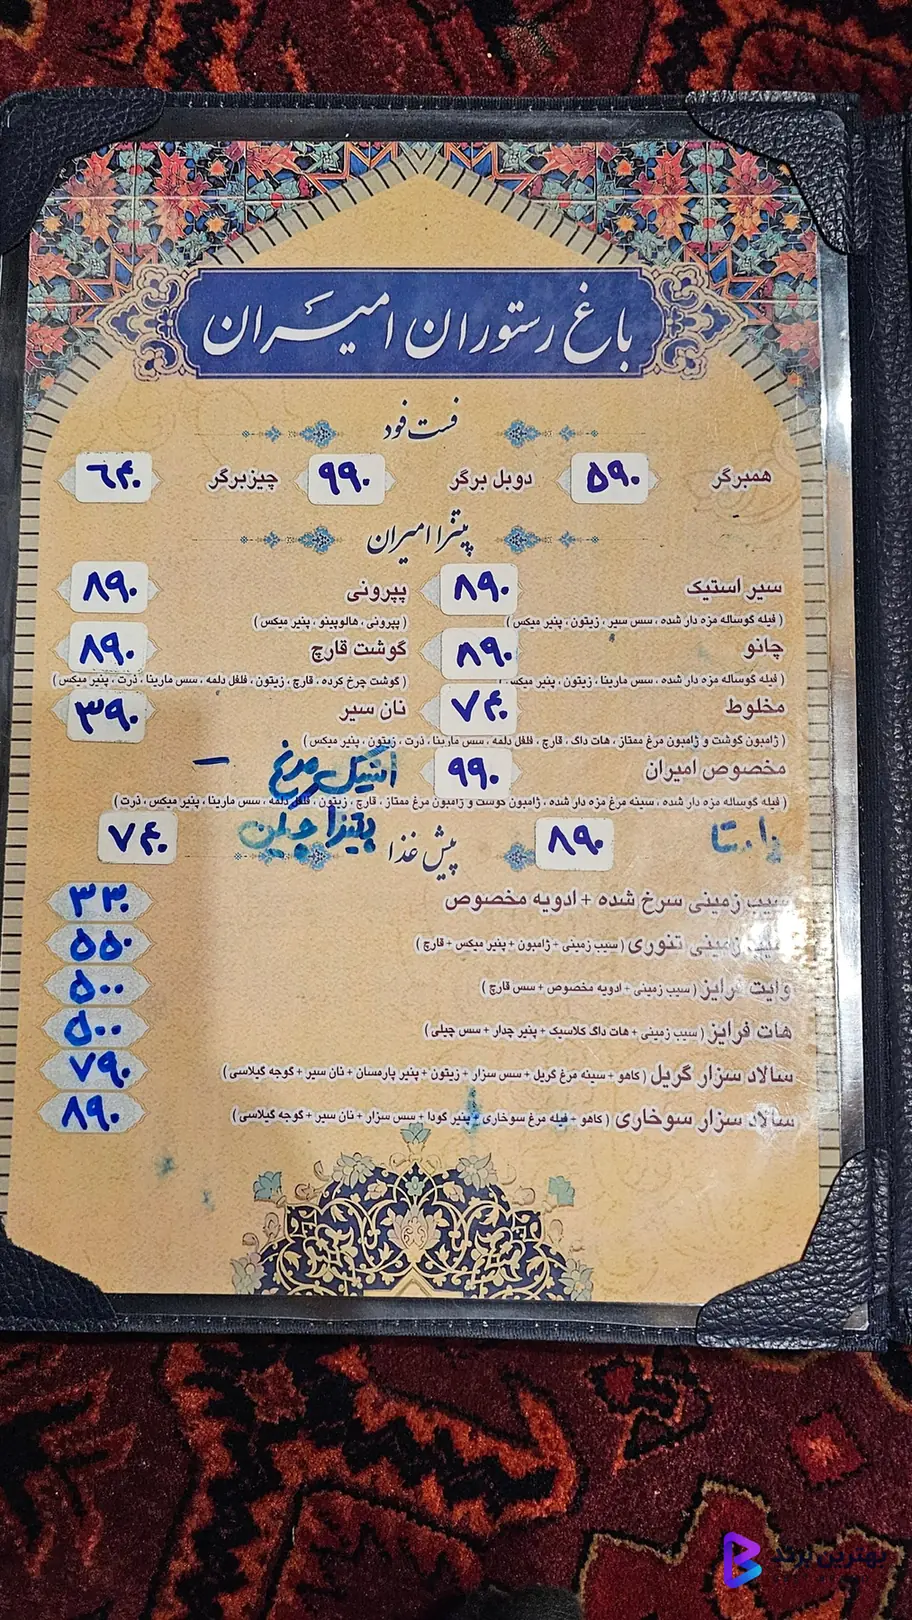 باغ رستوران امیران
فست فود
همبرگر ۵۹۰ دوبل برگر ۹۹۰ چیزبرگر ۶۴۰
پیتزا امیران
سیر استیک ۸۹۰ پپرونی ۸۹۰
( فیله گوساله مزه دار شده ، سس سیر ، زیتون ، پنیر میکس ) ( پپرونی ، هالوپینو ، پنیر میکس )
چانو ۸۹۰ گوشت قارچ ۸۹۰
( فیله گوساله مزه دار شده ، سس مارینا ، زیتون ، پنیر میکس ( گوشت چرخ کرده ، قارچ ، زیتون ، فلفل دلمه ، سس مارینا ، ذرت ، پنیر میکس )
مخلوط ۷۴۰ نان سیر ۳۹۰
( ژامبون گوشت و ژامبون مرغ ممتاز ، هات داگ ، قارچ ، فلفل دلمه ، سس مارینا ، ذرت ، زیتون ، پنیر میکس )
مخصوص امیران ۹۹۰ مرغ –
( فیله گوساله مزه دار شده ، سینه مرغ مزه دار شده ، ژامبون گوشت و ژامبون مرغ ممتاز ، قارچ ، زیتون ، فلفل دلمه ، سس مارینا ، پنیر میکس ، ذرت )
۸۹۰ پیتزا ۷۴۰
پیش غذا
سیب زمینی سرخ شده + ادویه مخصوص ۳۳۰
سیب زمینی تنوری ( سیب زمینی + ژامبون + پنیر میکس + قارچ ) ۵۵۰
وایت فرایز ( سیب زمینی + ادویه مخصوص + سس قارچ ) ۵۰۰
هات فرایز ( سیب زمینی + هات داگ کلاسیک + پنیر چدار + سس چیلی ) ۵۰۰
سالاد سزار گریل ( کاهو + سینه مرغ گریل + سس سزار + زیتون + پنیر پارمسان + نان سیر + گوجه گیلاسی ) ۷۹۰
سالاد سزار سوخاری ( کاهو + فیله مرغ سوخاری + پنیر گودا + سس سزار + نان سیر + گوجه گیلاسی ) ۸۹۰
بهترین برند